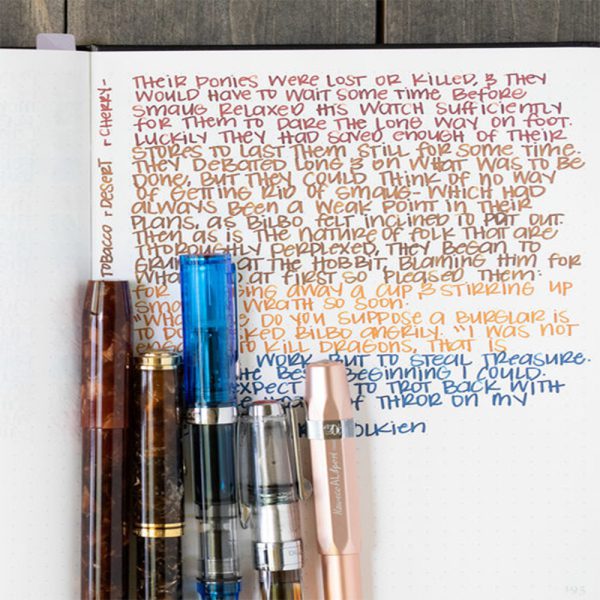 THEIR PONIES WERE LOST OR KILLED, & THEY
WOULD HAVE TO WAIT SOME TIME BEFORE
SMAUG RELAXED HIS WATCH SUFFICIENTLY
FOR THEM TO DARE THE LONG WAY ON FOOT.
LUCKILY THEY HAD SAVED ENOUGH OF THEIR
STORES TO LAST THEM STILL FOR SOME TIME.
THEY DEBATED LONG & ON WHAT WAS TO BE
DONE, BUT THEY COULD THINK OF NO WAY
OF GETTING RID OF SMAUG- WHICH HAD
ALWAYS BEEN A WEAK POINT IN THEIR
PLANS, AS BILBO FELT INCLINED TO PUT OUT.
THEN AS IS THE NATURE OF FOLK THAT ARE
THOROUGHLY PERPLEXED, THEY BEGAN TO
AT THE HOBBIT, BLAMING HIM FOR
AT FIRST SO PLEASED THEM:
FOR GING AWAY A CUP & STIRRING UP
WRATH SO SOON.
DO YOU SUPPOSE A BURGLAR IS
TO DO KED BILBO ANGRILY. "I WAS NOT
TO KILL DRAGONS, THAT IS
WORK, BUT TO STEAL TREASURE.
THE BEST BEGINNING I COULD.
EXPECT TO TROT BACK WITH
OF THROR ON MY
OLKIEN
TOBACCO + DESERT + CHERRY-
Kaweco AL Sport
195